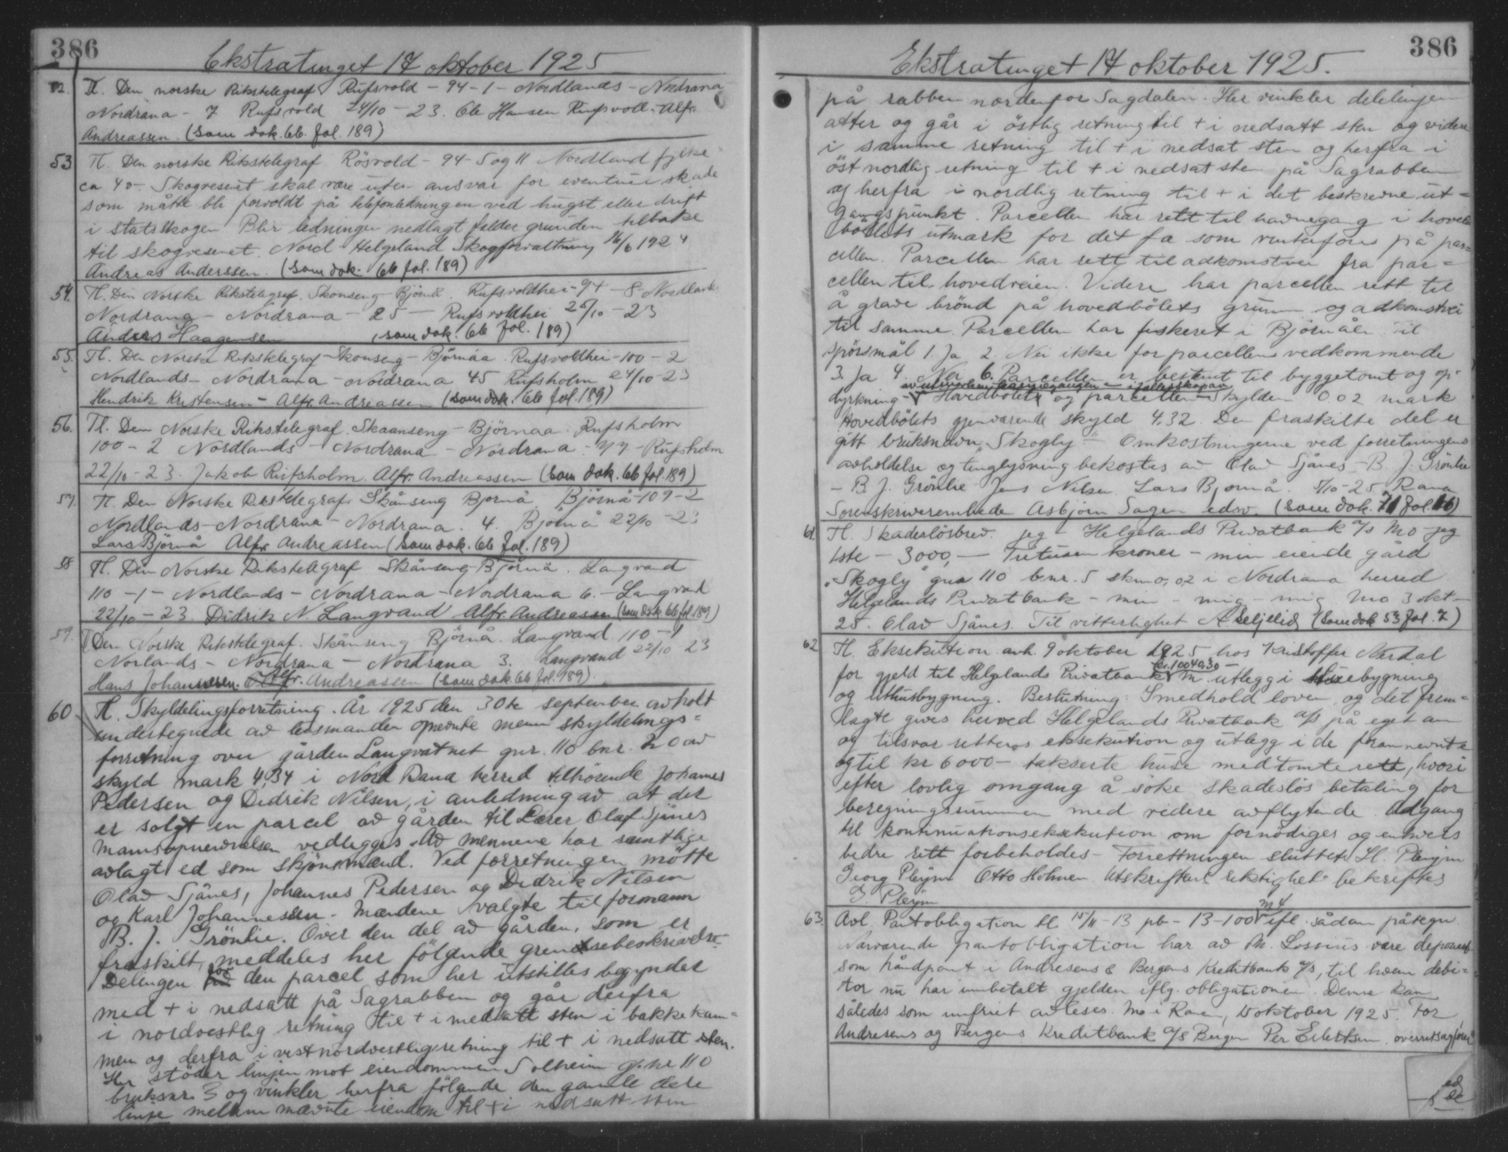 386
Ekstratinget 14 oktober 1925
52. Tl. Den norske Rikstelegraf Rufsvold - 94-1 - Nordlands - Nordrana
Nordrana - 7 Rufsvold 24/10 - 23. Ole Hansen Rufsvold. Alfr.
Andreassen. (Som dok. 66 fol. 189)
53 Tl. Den norske Rikstelegraf Rösvold - 94-5 og 11 Nordland fylke
ca 40 - Skogvesenet skal være uten ansvar for eventuel skade
som måtte bli forvoldt på telefonledningen ved hugst eller drift
i statsskogen Blir ledningen nedlagt falder grunden tilbake
til skogvesenet. Nord Helgeland Skogforvaltning 16/6 1924
Andreas Anderssen. (Som dok. 66 fol. 189)
54. Tl. Den Norske Rikstelegraf. Skonseng - Björnå Rufsvoldhei - 94 - 8 Nordland
Nordrana - Nordrana - 25 - Rufsvoldhei 25/10 - 23
Anders Haagensen (som dok. 66 fol. 189)
55. Tl. Den Norske Rikstelegraf - Skonseng - Björnaa. Rufsvoldhei - 100 - 2
Nordlands - Nordrana - Nordrana 45 Rufsholm 24/10 - 23
Hendrik Kristensen - Alfr. Andreassen (som dok. 66 fol. 189)
56. Tl. Den Norske Rikstelegraf. Skaanseng - Björnaa. Rufsholm
100 - 2 Nordlands - Nordrana - Nordrana - Rufsholm
22/10 - 23. Jakob Rufsholm. Alfr. Andreassen (Som dok. 66 fol 189)
57. Tl. Den Norske Rikstelegraf Skånseng Bjornå Björnå 109 - 2
Nordlands - Nordrana - Nordrana. 4. Björnå 22/10 - 23
Lars Björnå Alfr Andreassen (Som dok. 66 fol. 189)
58 Tl. Den Norske Rikstelegraf Skånseng Björnå. Langvad
110 - 1 - Nordlands - Nordrana - Nordrana 6. - Langvad
22/10 - 23. Didrik N Langvand Alfr Andreassen (Som dok 66 fol 189)
59. Den Norske Rikstelegraf. Skånseng Björnå. Langvand 110 - 9
Norlands - Nordrana - Nordrana 3. Langvand 22/10 23
Hans Johansen. Alfr. Andreassen (som dok 66 fol. 189)
60 Tl. Skyldelingsforretning. År 1925 den 30te september avholt
undertegnede av lensmanden opnevnte menn skyldelings-
forretning over gården Langvatnet gnr. 110 bnr. 2 av
skyld mark 4,34 i Nord Rana herred tilhörende Johannes
Pedersen og Didrik Nilsen, i anledning av at det
er solgt en parcel av gården til Lærer Olaf Sjånes
Mansopnevnelsen vedlegges. Av mennene har samtlige
avlagt ed som skjönsmænd. Ved forretningen mötte
Olav Sjånes, Johannes Pedersen og Didrik Nilsen
og Karl Johannessen. Mændene valgte til formann
B. J. Grönlie. Over den del av gården, som er
fraskilt, meddeles her fölgende grensebeskrivelse
Delingen for den parcel som her utskilles begynder
med + i nedsatt på Sagrabben og går derfra
i nordvestlig retning til + i nedsatt sten i bakkekam-
men og derfra i vestnordvestlig retning til + i nedsatt sten.
Her stöder linjen mot eiendommen Solheim g.nr 110
bruksnr. 3 og vinkler herfra fölgende den gamle dele
linje mellem nævnte eiendom til + i nedsatt sten
386
Ekstratinget 14 oktober 1925.
på rabben nordenfor Sagdalen. Her vinkler delelinjen
atter og går i östlig retning til + i nedsatt sten og videre
i samme retning til + i nedsat sten og herfra i
öst nordlig retning til + i nedsat sten på Sagrabben
og herfra i nordlig retning til + i det beskrevne ut-
gangspunkt. Parcellen har rett til havnegang i hoved
bölets utmark for det fæ som vinterföres på par-
cellen. Parcellen har rett til adkomstvei fra par-
cellen til hovedveien. Videre har parcellen rett til
å grave brönd på hovedbölets grunn og adkomstvei
til samme. Parcellen har fiskeret i Björnåen Til
spörsmål 1. Ja 2. Nei ikke for parcellens vedkommende
3 Ja 4. Nei 6. Parcellen er bestemt til byggetomt og op-
dyrkning - Hovedbölets og parcellen - Skylden 0 02 mark
Hovedbölets gjenværende skyld 4.32. Den fraskilte del er
gitt bruksnavn "Skogly" Omkostningerne ved forretningens
avholdelse og tinglysning bekostes av Olav Sjånes - B. J. Grönlie
- B J. Grönlie Jens Nilsen. Lars Bjornå. 5/10 - 25 Rana
Sorenskriverembede Asbjörn Sagen edsv. (som dok. 71 fol 16)
61. Tl. Skadeslösbrev. jeg - Helgelands Privatbank a/s Mo jeg
1ste - 3000,- Tretusen kroner - min eiende gård
"Skogly" gnr 110 bnr. 5 skm 0,02 i Nordrana herred
Helgelands Privatbank - min - mig - mig Mo 3 okt -
25. Olav Sjånes. Til vitterlighet A Seljelid (Som dok 53 fol. 7)
62 Tl. Eksekution avh 9 oktober 1925 hos Kristoffer Nardal
kr. 10040.30 -
for gjeld til Helgelands Privatbank m. utlegg i husebygning
og uthusbygning. Beslutning: I medhold loven og det frem-
lagte gives herved Helgelands Privatbank a/s på eget an
og tilsvar rettens eksekution og utlegg i de forannevnte
og til kr 6000 - takserte huse med tomterett, hvori
efter lovlig omgang å söke skadeslös betaling for
beregningssummen med videre avflytende Adgang
til kontinuationseksekution om fornödiges og enhvers
bedre rett forbeholdes - Forrettningen sluttet. H. Pleym
Georg Pleym Otto Holmen Utskriftens riktighet bekreftes
H Pleym
63. Avl. Pantobligation tl 15/11 - 13 pb - 13-100 m fl. sådan påtegn
Nærværende pantobligation har av M. Lossius vere deponert
som håndpant i Andresens & Bergens Kreditbank a/s, til hvem debi-
tor nu har innbetalt gjelden iflg. obligationen. Denne kan
således som innfriet avleses. Mo i Rana, 10 oktober 1925. For
Andresens og Bergens Kreditbank a/s Bergen Per Eilertsen, overretssagförer